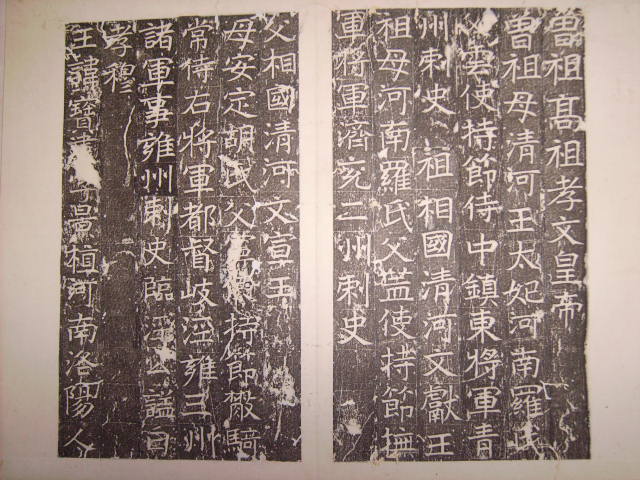 曾祖高祖孝文皇帝
曾祖母清河王太妃河南羅氏
父雲使持節侍中鎮東將軍青
州刺史 祖相國清河文獻王
祖母河南羅氏父蓋使持節撫
軍將軍濟兗二州刺史
父相國清河文宣王
母安定胡氏父 持節散騎
常侍右將軍都督岐涇雍三州
諸軍事雍州刺史臨涇公諡曰
孝穆
王諱寶 景植河南洛陽人